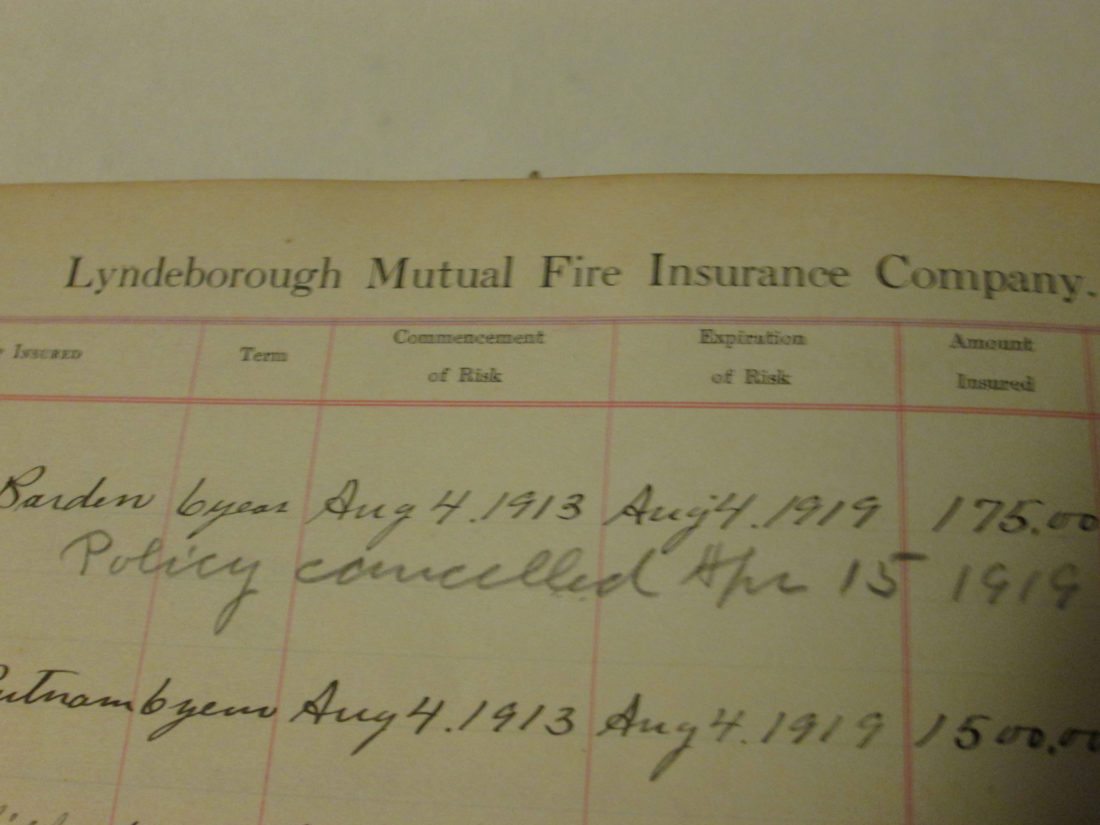 Lyndeborough Mutual Fire Insurance Company.
Insured Term Commencement of Risk Expiration of Risk Amount Insured
Barden 6 year Aug 4. 1913 Aug 4. 1919 175.00
Policy cancelled Apr 15 1919
Putnam 6 year Aug 4. 1913 Aug 4. 1919 1500.00